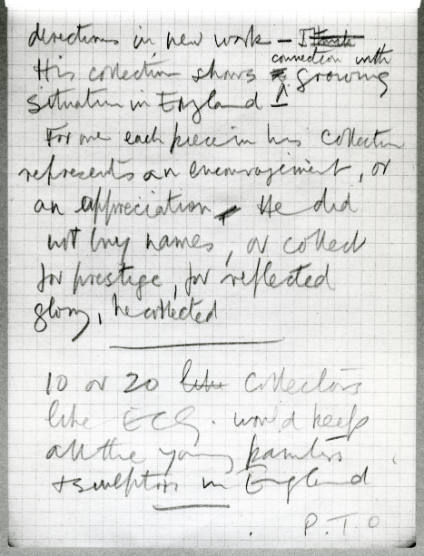 directions in new work –
connection with
His collection shows growing
situation in England
For me each piece in his collection
represents an encouragement, or
an appreciation. He did
not buy names, or collect
for prestige, for reflected
glory, he collected
10 or 20 like collectors
like ECG. would keep
all the young painters
+ sculptors in England
P.T.O